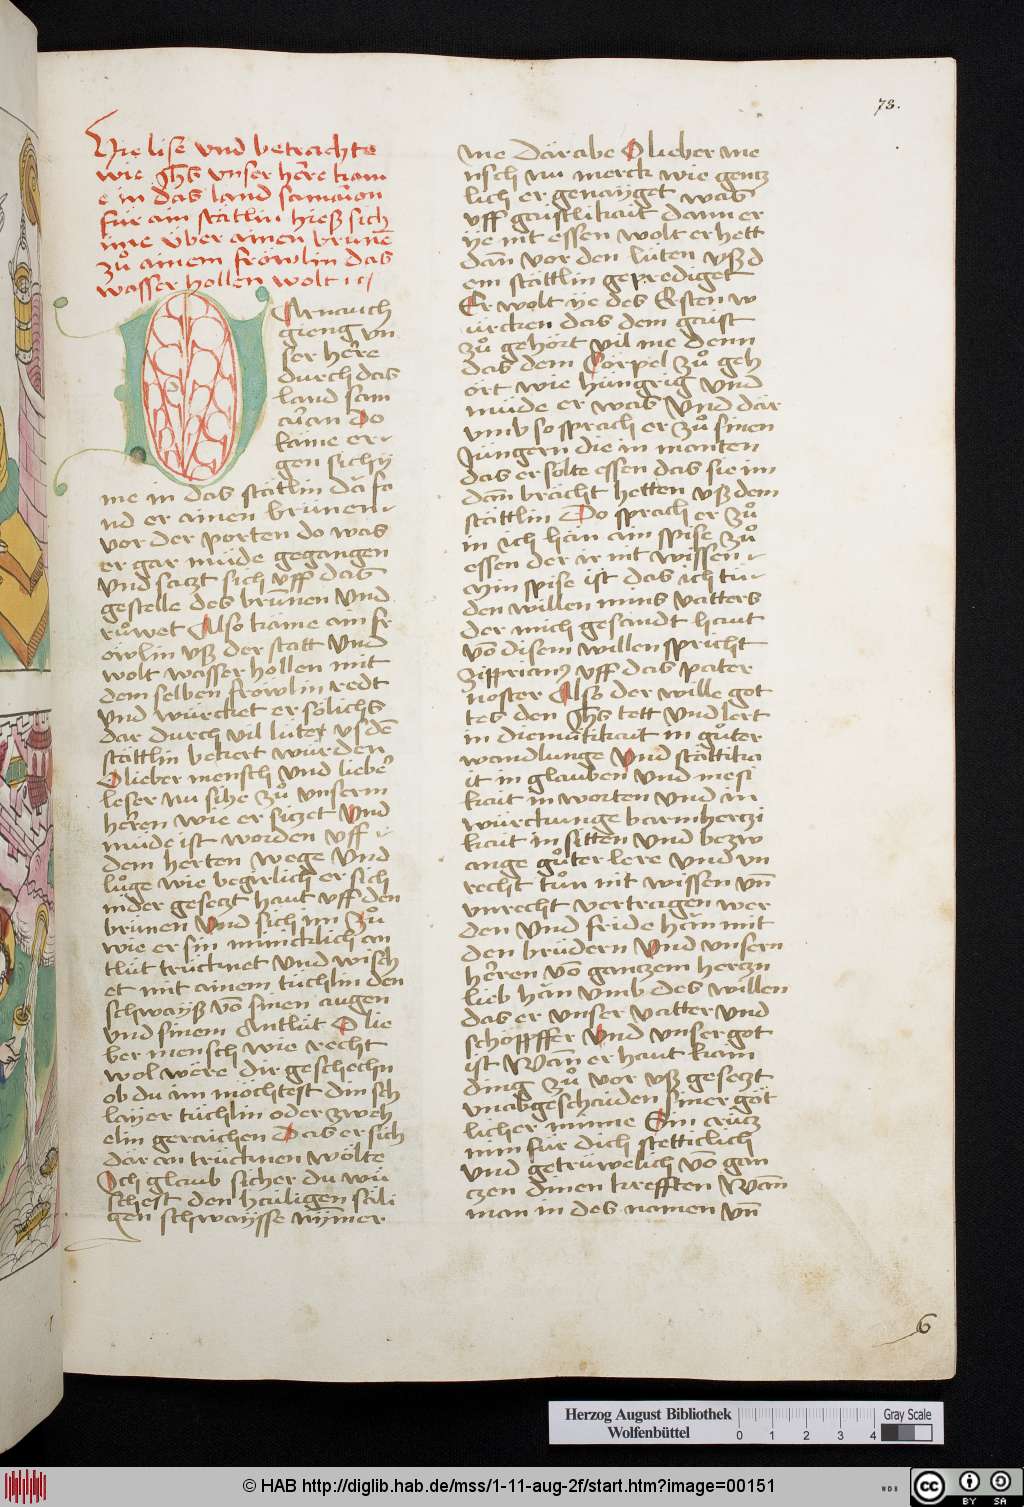 78.
Hie lise vnd betrachte
wie ihs vnser herre kam
e in das land samarion
für ain stätlin hieß sich
ime über ainen brunē
zů ainem fröwlin das
wasser hollen wolt
Arnauch
gieng vn
ser herre
durch das
land sam
arian Do
kame er
gen sichy
me in das stätlin da fa
nd er ainen brunen
vor der porten do was
er gar müde gegangen
vnd satzt sich vff das
gestelle des brunnen vnd
růwet Also kame ain fr
öwlin vß der statt vnd
wolt wasser hollen mit
dem selben fröwlin redt
vnd würcket er sölichs
dar durch vil lütet vsdē
stättlin bekert wurden
O lieber mensch vnd lieber
leser nu sihe zů vnserm
herren wie er sizet vnd
müde ist worden vff
dem herten wege vnd
lůge wie begirlich er sich
nider gesetzt haut vff den
brunen vnd sich im zů
wie er sin minicklich an
tlüt trücknet vnd wisch
et mit ainem tüchlin den
schwayß vō sinen augen
vnd sinem Antlüt O lie
ber mensch wie recht
wol were dir geschechn
ob du im möchtest din sch
layer tüchlin oder zweh
elin geraichen Das er sich
dar an trücknen wölte
Ich glaub sicher du wü
schest den hailigen säli
gen schwaysse nymer
me dar abe O lieber me
nsch nu merck wie gentz
lich er genayget was
vff gaistlikait dann er
ye nit essen wolt er hett
dan vor den lüten vß d
em stättlin geprediget
Er wolt ye des Ersten w
ürcken das dem gaist
zů gehört vil me denn
das dem Cörpel zů geh
ört wie hüngrig vnd
müde er was Vnd dar
vmb so sprach er zů sinen
Jüngern die in manten
das er solte essen das sie im
dan bracht hetten vß dem
stättlin Do sprach er zů
in ich han ain spise zů
essen der ir nit wissen
Min spise ist das ich tü
den willen mins vatters
der mich gesandt haut
vō disem willen spricht
vff das pater
noster Also der wille got
tes den ihs tett vnd lert
in diemütikait in gůter
wandlunge Vnd stättika
it in glauben vnd mesi
kait in worten vnd in
würckunge barmherzi
kait in sitten vnd bezw
ange gůter lere vnd vn
recht tůn nit wissen vn̄
vnrecht vertragen wer
den vnd fride han mit
den brüdern Vnd vnsern
herren vō gantzem hertzn
lieb han vmb des willen
das er vnser vatter vnd
schöpffer Vnd vnser got
ist Wan er haut kain
ding zů vor vß gesetzt
vnabgeschaiden siner göt
licher minne Sin crütz
nim für dich stetticlich
vnd getrüwelich vō gan
czen dinen krefften Wan̄
man in des namen vn̄
6
Herzog August Bibliothek
Wolfenbüttel
0 1 2 3 4
Gray Scale
© HAB http://diglib.hab.de/mss/1-11-aug-2f/start.htm?image=00151
WDB
cc BY SA